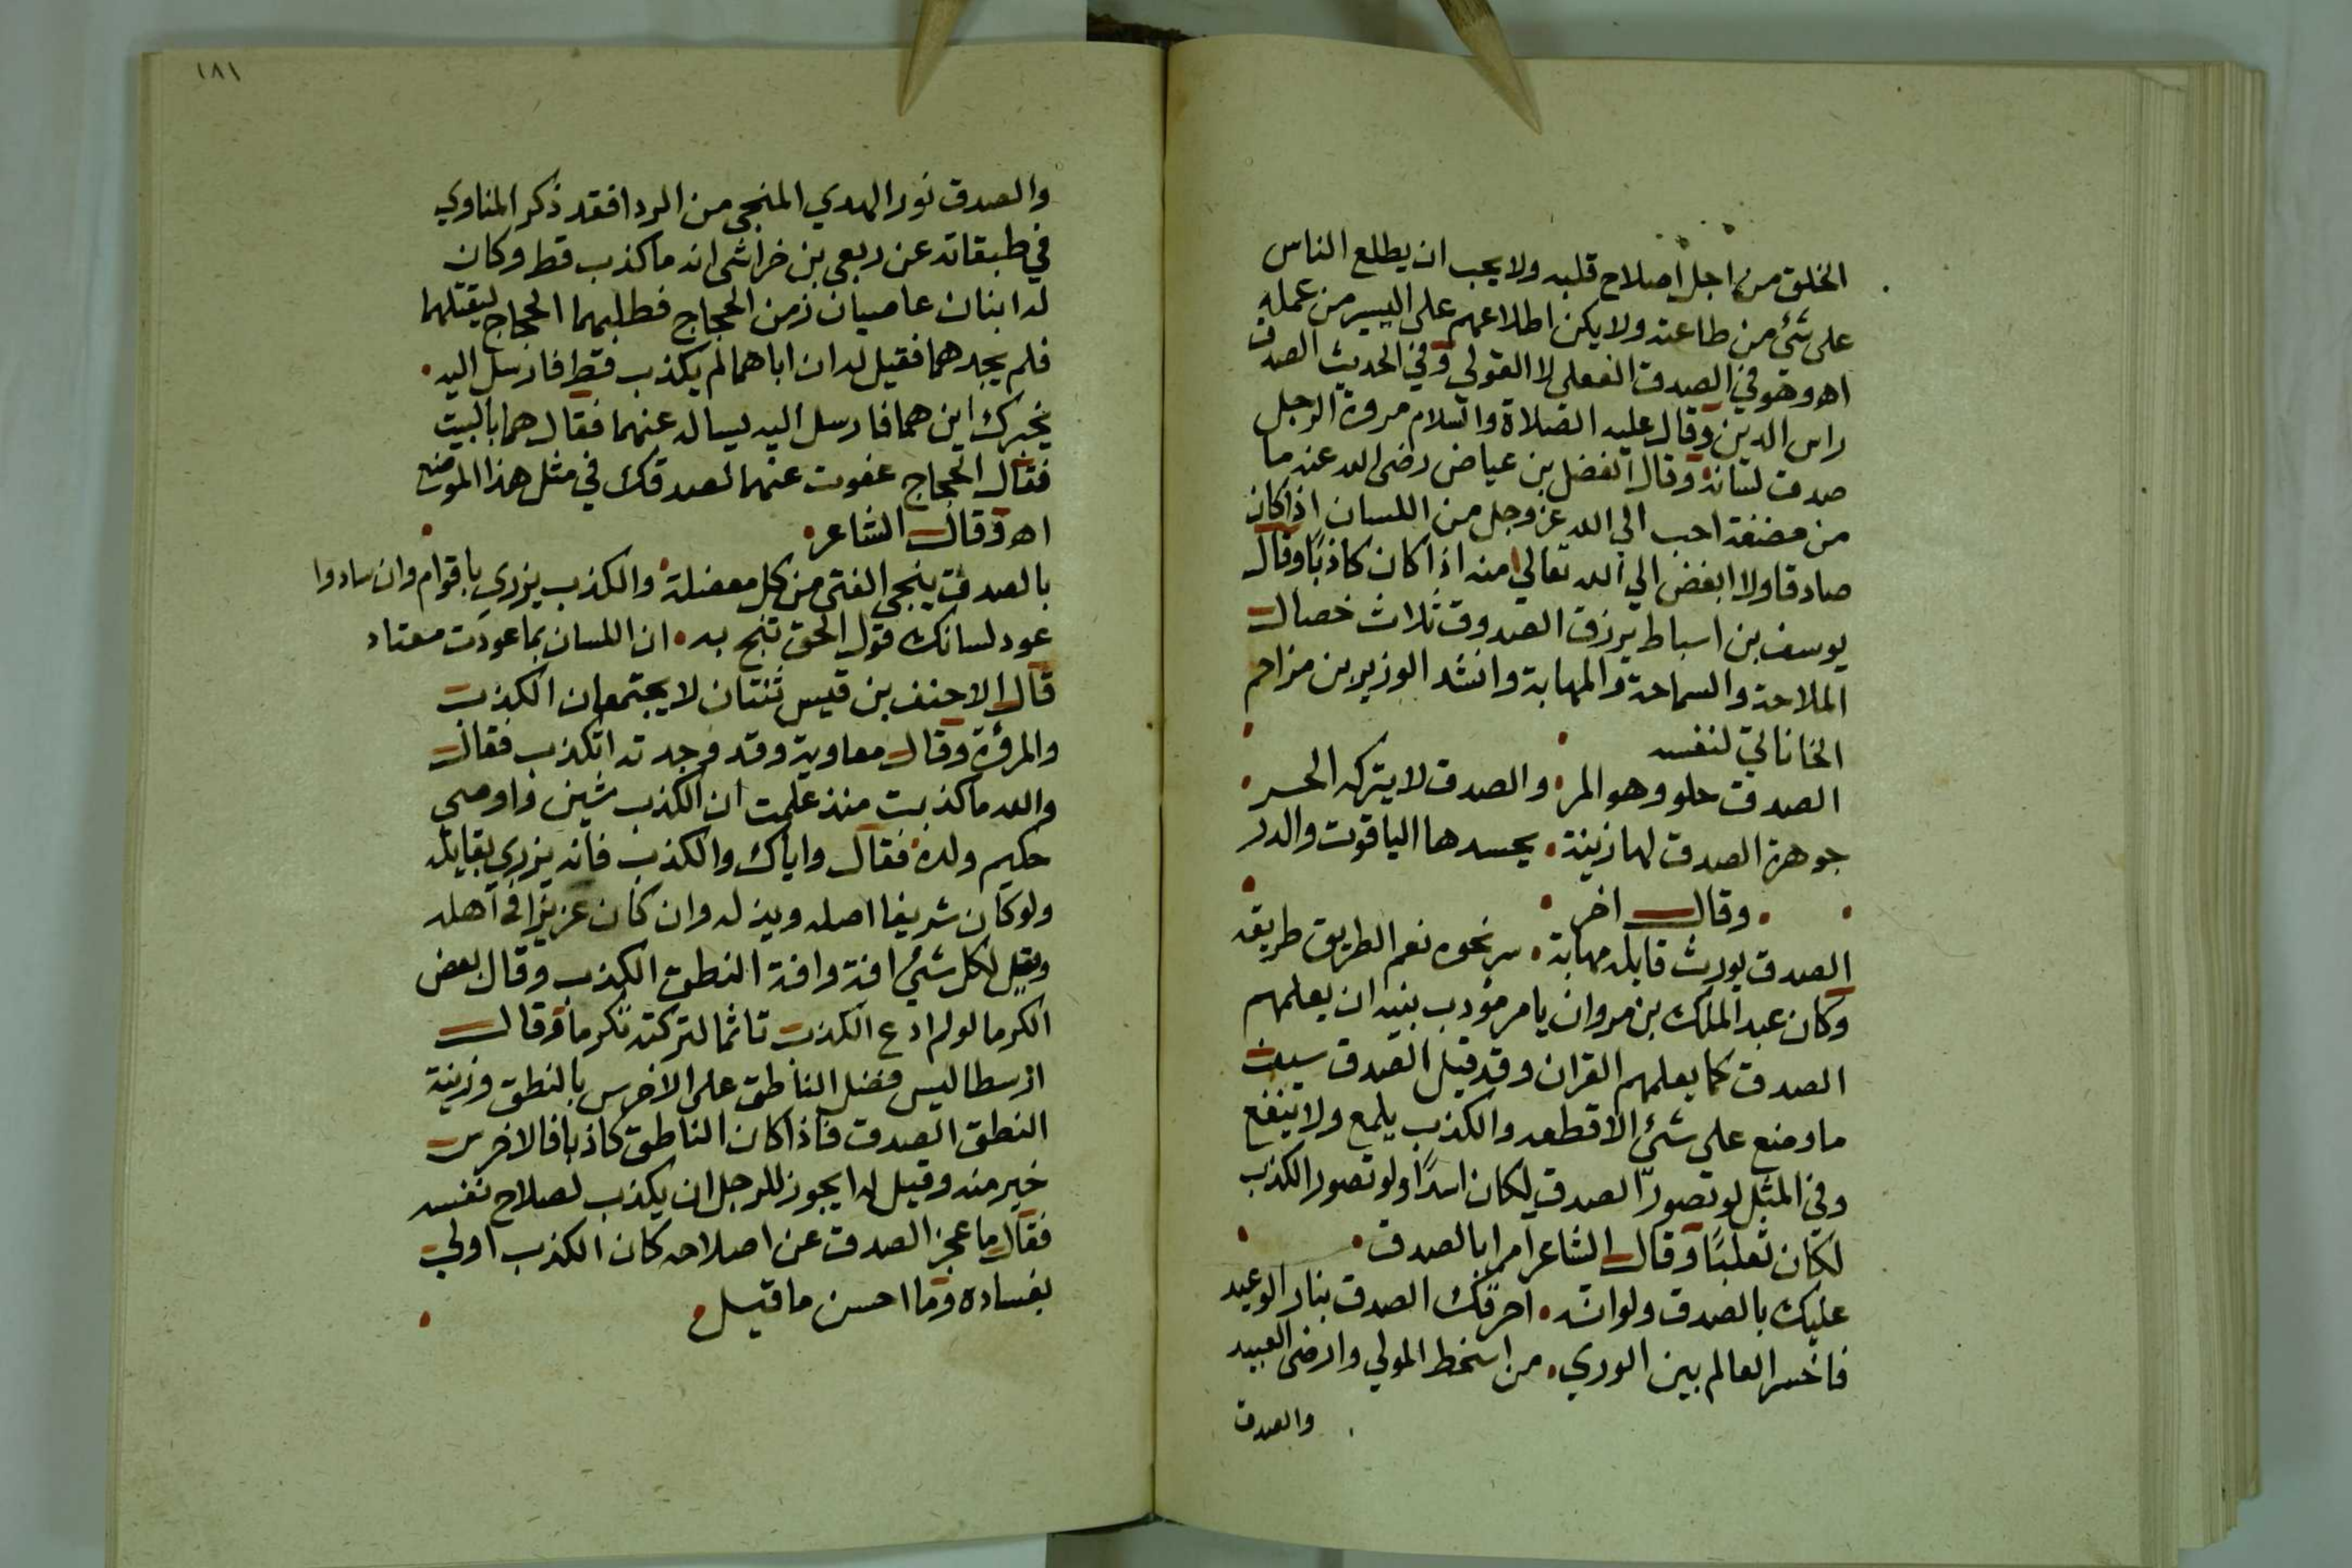 الخلق من اجل اصلاح قلبه ولا يحب ان يطلع الناس
على شئ من طاعته ولا يكن اطلاعهم على اليسير من عمله
اه وهو في الصدق الفعلي لا القولي وفي الحديث الصدق
راس الدين وقال عليه الصلاة والسلام مروة الرجل
صدق لسانه وقال الفضل بن عياض رضى الله عنه ما
من مضغة احب الى الله عز وجل من اللسان اذا كان
صادقا ولا ابغض الي الله تعالي منه اذا كان كاذبًا وقال
يوسف بن اسباط يرزق الصدوق ثلاث خصال
الملاحة والسماحة والمهابة وانشد الوزير بن مزاحم
الخاناني لنفسه
الصدق حلو وهو المر والصدق لا يتركه الحر
جوهرة الصدق لها زينة يحسدها الياقوت والدر
وقال اخر
الصدق يورث قايله مهابة سر نحوه نعم الطريق طريقه
وكان عبد الملك بن مروان يامر مؤدب بنيه ان يعلمهم
الصدق كما يعلمهم القران وقد قيل الصدق سيف
ما وضع على شئ الا قطعه والكذب يلمع ولا ينفع
وفي المثل لو تصور الصدق لكان اسدًا ولو تصور الكذب
لكان ثعلبًا وقال الشاعر امرا بالصدق
عليك بالصدق ولو انه احرقك الصدق بنار الوعيد
فاخسر العالم بين الوري من اسخط المولي وارضى العبيد
والصدق
١٨١
والصدق نور الهدي المنجي من الردا فقد ذكر المناوي
في طبقاته عن ربعي بن خراشي انه ما كذب قط وكان
له ابنان عاصيان زمن الحجاج فطلبهما الحجاج ليقتلهما
فلم يجدهما فقيل له ان اباهما لم يكذب قط فارسل اليه
يخبرك اين هما فارسل اليه يساله عنهما فقال هما بالبيت
فقال الحجاج عفوت عنهما لصدقك في مثل هذا الموضع
اه وقال الشاعر
بالصدق ينجي الفتى من كل معضلة والكذب يزري باقوام وان سادوا
عود لسانك قول الحق تنج به ان اللسان بما عودت معتاد
قال الاحنف بن قيس ثنتان لا يجتمعان الكذب
والمرؤة وقال معاوية وقد وجدته اتكذب فقال
والله ما كذبت منذ علمت ان الكذب شين واوصي
حكيم ولده فقال واياك والكذب فانه يزري بقايله
ولو كان شريفا اصله ويذله وان كان عزيزا في اهله
وقيل لكل شئ افة وافة النطق الكذب وقال بعض
الكرما لو لم ادع الكذب تاثما لتركته تكرما وقال
ارسطاليس فضل الناطق على الاخرس بالنطق وزينة
النطق الصدق فاذا كان الناطق كاذبا فالاخرس
خير منه وقيل له ايجوز للرجل ان يكذب لصلاح نفسه
فقال ما عجز الصدق عن اصلاحه كان الكذب اولي
بفساده وما احسن ما قيل